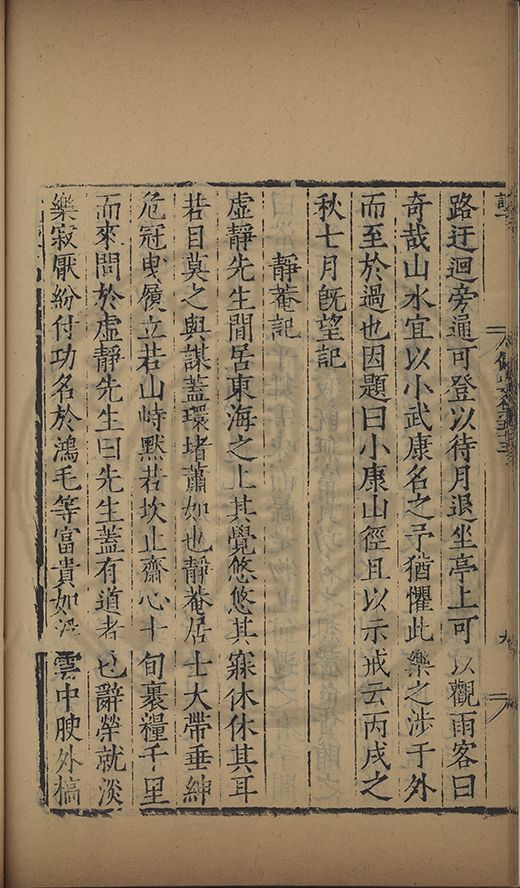 路迂迴旁通可登以待月退坐亭上可以觀雨客曰
奇哉山水宜以小武康名之予猶懼此樂之涉于外
而至於過也因題曰小康山徑且以示戒云丙戌之
秋七月旣望記
靜菴記
虛靜先生閒居東海之上其覺悠悠其寐休休其耳
若目莫之與謀蓋環堵蕭如也靜菴居士大帶垂紳
危冠曳履立若山峙默若坎止齋心十旬裹糧千里
而來問於虛靜先生曰先生蓋有道者也辭榮就淡
樂寂厭紛付功名於鴻毛等富貴如浮雲中腴外槁